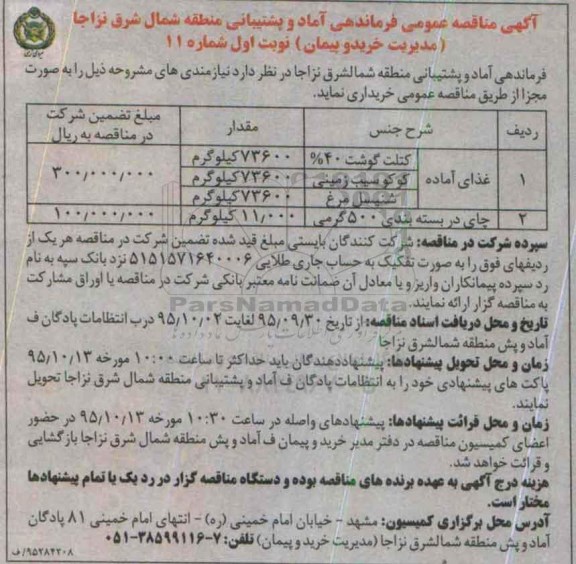 آگهی مناقصه عمومی فرماندهی آماد و پشتیبانی منطقه شمال شرق نزاجا
( مدیریت خریدو پیمان ) نوبت اول شماره ۱۱
فرماندهی آماد و پشتیبانی منطقه شمالشرق نزاجا در نظر دارد نیازمندی های مشروحه ذیل را به صورت
مجزا از طریق مناقصه عمومی خریداری نماید.
ردیف شرح جنس مقدار مبلغ تضمین شرکت در مناقصه به ریال
۱ غذای آماده کتلت گوشت ۴۰% ۷۳۶۰۰کیلوگرم ۳۰۰,۰۰۰,۰۰۰
کوکو سیب زمینی ۷۳۶۰۰کیلوگرم
شنیسل مرغ ۷۳۶۰۰کیلوگرم
۲ چای در بسته بندی ۵۰۰ گرمی ۱۱,۰۰۰ کیلوگرم ۱۰۰,۰۰۰,۰۰۰
سپرده شرکت در مناقصه: شرکت کنندگان بایستی مبلغ قید شده تضمین شرکت در مناقصه هر یک از
ردیفهای فوق را به صورت تفکیک به حساب جاری طلایی ۵۱۵۱۵۷۱۶۴۰۰۰۶ نزد بانک سپه به نام
رد سپرده پیمانکاران واریز و یا معادل آن ضمانت نامه معتبر بانکی شرکت در مناقصه یا اوراق مشارکت
به مناقصه گزار ارائه نمایند.
ParsNamadData
تاریخ و محل دریافت اسناد مناقصه: از تاریخ ۹۵٫۰۹٫۳۰ لغایت ۹۵٫۱۰٫۰۲ درب انتظامات پادگان ف
آماد و پش منطقه شمالشرق نزاجا
زمان و محل تحویل پیشنهادها: پیشنهاددهندگان باید حداکثر تا ساعت ۱۰:۰۰ مورخه ۹۵٫۱۰٫۱۳
پاکت های پیشنهادی خود را به انتظامات پادگان ف آماد و پشتیبانی منطقه شمال شرق نزاجا تحویل
نمایند.
زمان و محل قرائت پیشنهادها: پیشنهادهای واصله در ساعت ۱۰:۳۰ مورخه ۹۵٫۱۰٫۱۳ در حضور
اعضای کمیسیون مناقصه در دفتر مدیر خرید و پیمان ف آماد و پش منطقه شمال شرق نزاجا بازگشایی
و قرائت خواهد شد.
هزینه درج آگهی به عهده برنده های مناقصه بوده و دستگاه مناقصه گزار در رد یک یا تمام پیشنهادها
مختار است.
آدرس محل برگزاری کمیسیون: مشهد - خیابان امام خمینی (ره) - انتهای امام خمینی ۸۱ پادگان
آماد و پش منطقه شمالشرق نزاجا (مدیریت خرید و پیمان) تلفن: ۷-۳۸۵۹۹۱۱۶-۰۵۱
۹۵۲۸۴۲۰۸/ف